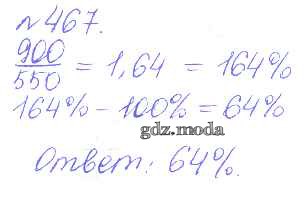 №467.
900/550 = 1,64 = 164%
164% - 100% = 64%
gdz.moda
Ответ: 64%.